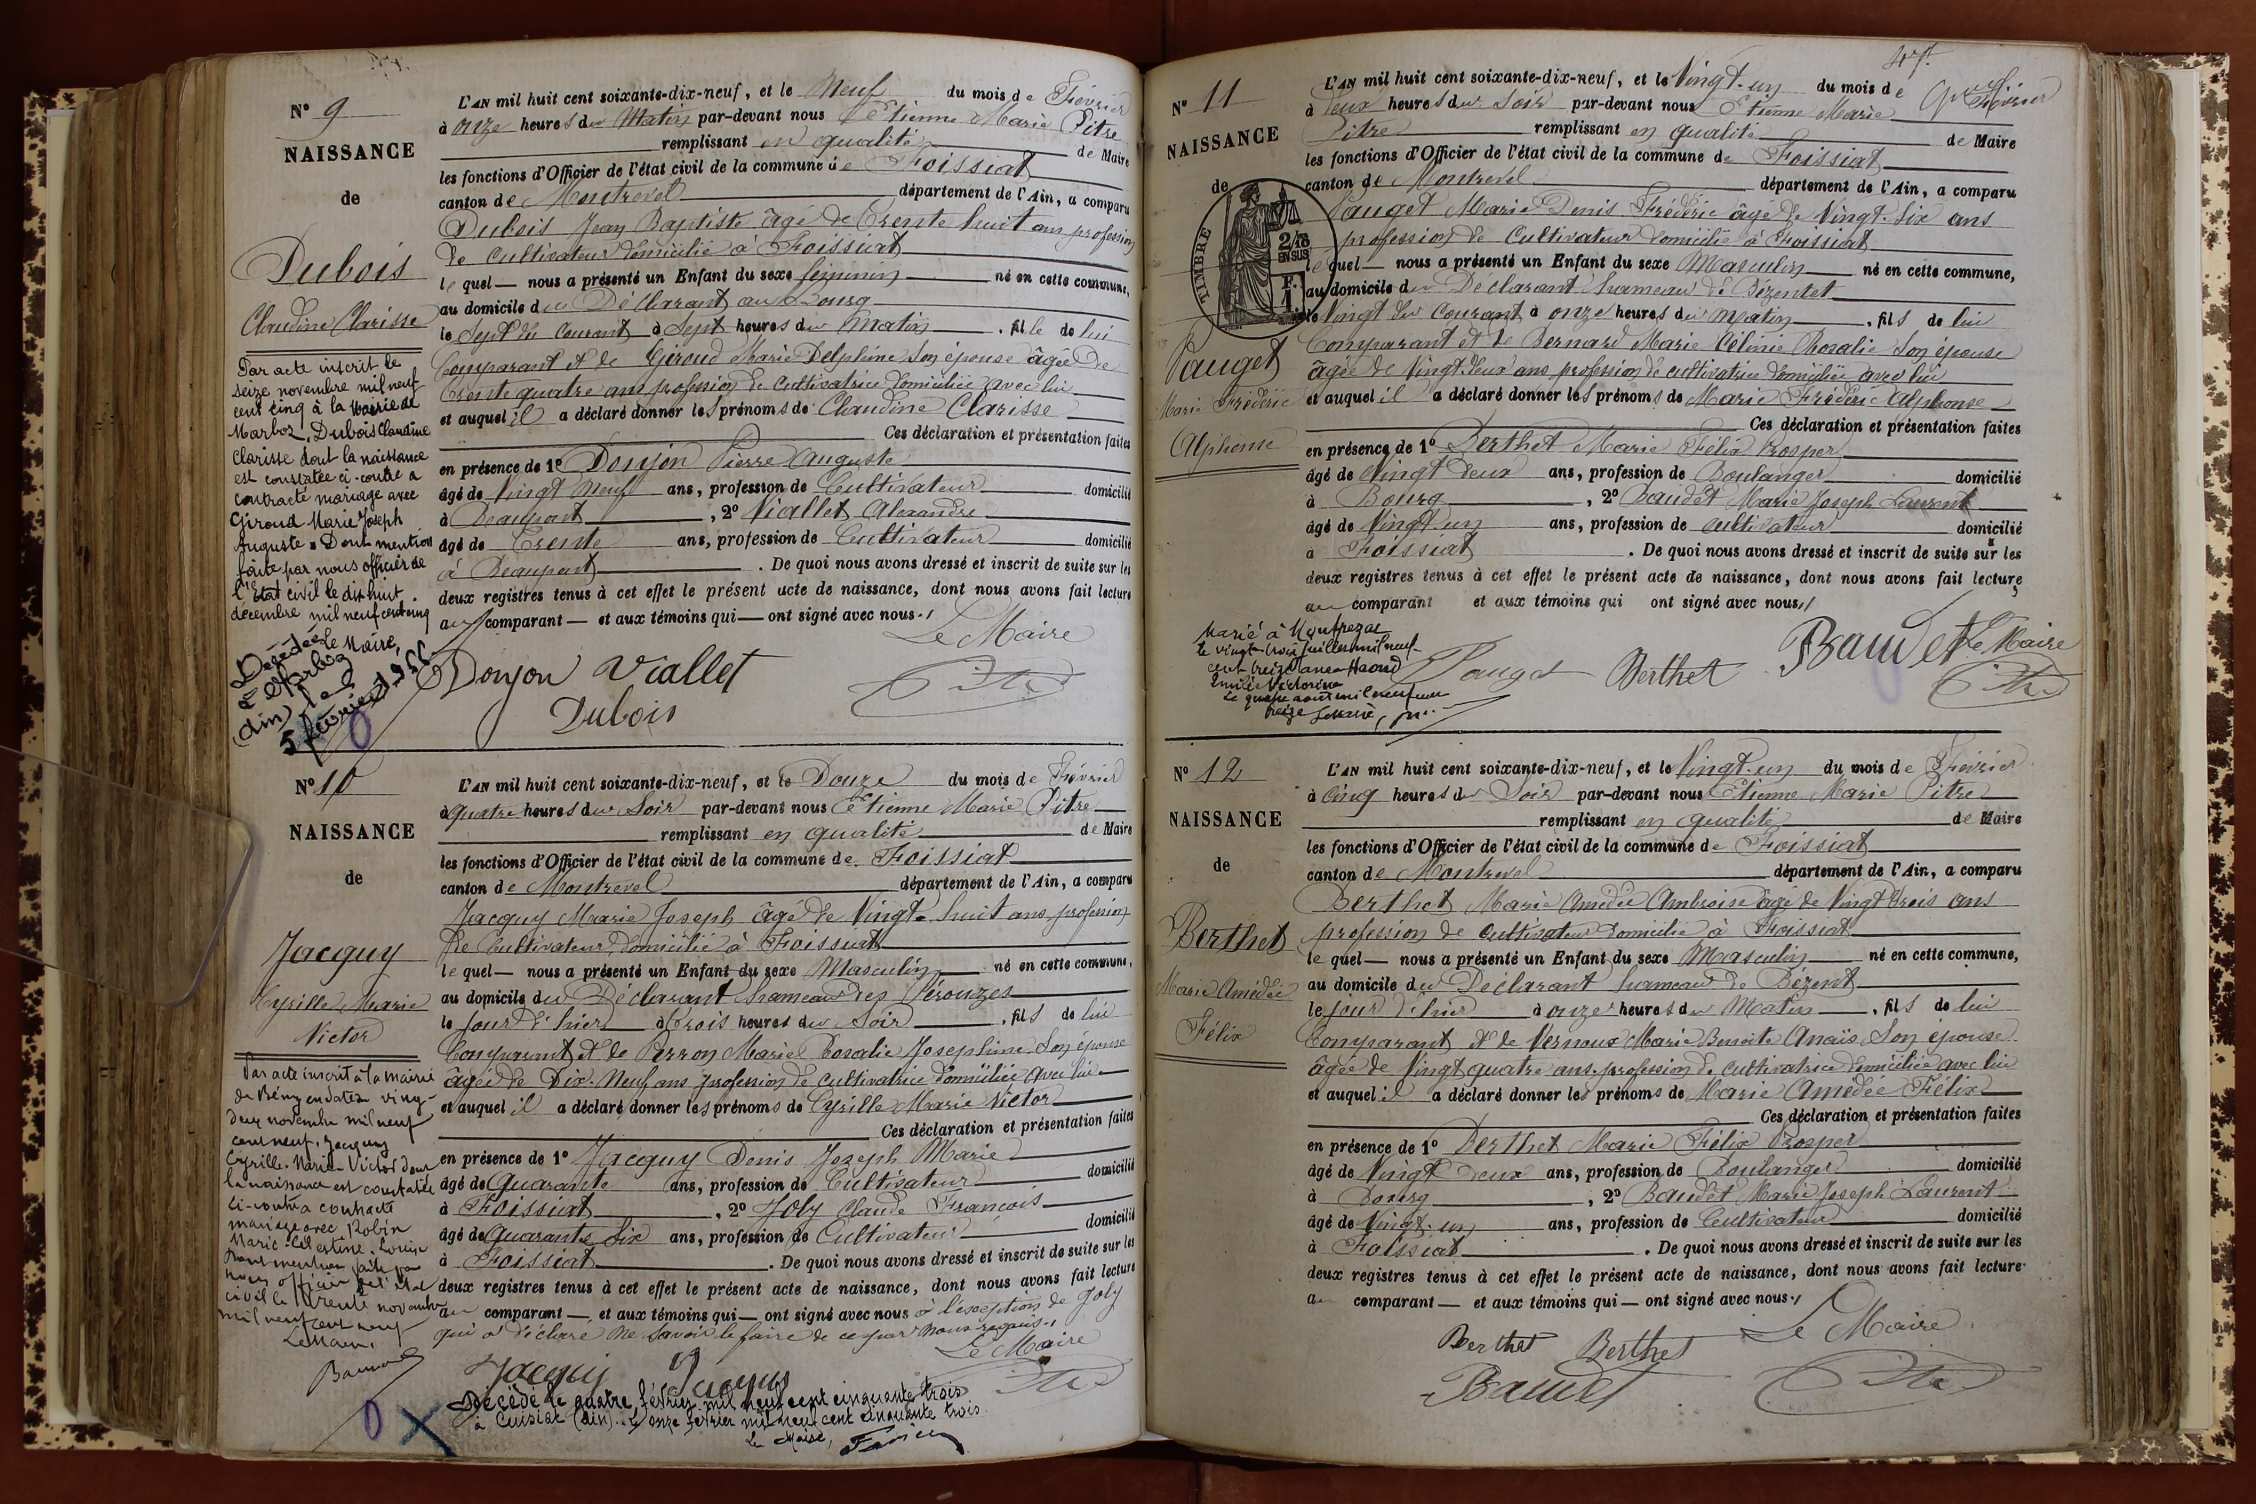 Nº 9
NAISSANCE
de
Dubois
Claudine Clarisse
Par acte inscrit le
seize novembre mil neuf
cent cinq à la Mairie de
Marboz, Dubois Claudine
Clarisse dont la naissance
est constatée ci-contre a
contracté mariage avec
Giroud Marie Joseph
Auguste. Dont mention
faite par nous officier de
l'Etat civil le dix huit
décembre mil neuf cent cinq
Le Maire,
Décédée
à Marboz
(Ain) le
5 février
L'AN mil huit cent soixante-dix-neuf, et le Neuf du mois de Février
à onze heures du Matin par-devant nous Etienne Marie Pitre
remplissant en qualité de Maire
les fonctions d'Officier de l'état civil de la commune de Foissiat
canton de Montrevel département de l'Ain, a comparu
Dubois Jean Baptiste âgé de Trente huit ans profession
de cultivateur domicilié à Foissiat
le quel — nous a présenté un Enfant du sexe féminin né en cette commune,
au domicile du Déclarant au Bourg
le Sept du courant à Sept heures du Matin . fille de lui
Comparant et de Giroud Marie Delphine son épouse âgée de
Trente quatre ans profession de cultivatrice domiciliée avec lui
et auquel il a déclaré donner les prénoms de Claudine Clarisse
Ces déclaration et présentation faites
en présence de 1º Donjon Pierre Auguste
âgé de Vingt Neuf ans, profession de Cultivateur domicilié
à Beaupont , 2º Viallet Alexandre
âgé de Trente ans, profession de Cultivateur domicilié
à Beaupont . De quoi nous avons dressé et inscrit de suite sur les
deux registres tenus à cet effet le présent acte de naissance, dont nous avons fait lecture
au comparant — et aux témoins qui — ont signé avec nous.
Le Maire
Donjon Viallet
Pitre
Dubois
Nº 10
NAISSANCE
de
Jacquy
Cyrille Marie
Victor
Par acte inscrit à la mairie
de Bény en date du vingt
deux novembre mil neuf
cent neuf, Jacquy
Cyrille Marie Victor dont
la naissance est constatée
ci-contre a contracté
mariage avec Robin
Marie Célestine Louise
Dont mention faite par
nous officier de l'état
civil le trente novembre
mil neuf cent neuf
Le Maire,
L'AN mil huit cent soixante-dix-neuf, et le Douze du mois de Février
à quatre heures du Soir par-devant nous Etienne Marie Pitre
remplissant en qualité de Maire
les fonctions d'Officier de l'état civil de la commune de Foissiat
canton de Montrevel département de l'Ain, a comparu
Jacquy Marie Joseph âgé de Vingt huit ans profession
de Cultivateur domicilié à Foissiat
le quel — nous a présenté un Enfant du sexe Masculin né en cette commune,
au domicile du Déclarant hameau des Pérouzes
le jour d'hier à trois heures du Soir . fils de lui
Comparant et de Perron Marie Rosalie Josephine son épouse
âgée de Dix-Neuf ans profession de cultivatrice domiciliée avec lui
et auquel il a déclaré donner les prénoms de Cyrille Marie Victor
Ces déclaration et présentation faites
en présence de 1º Jacquy Denis Joseph Marie
âgé de Quarante ans, profession de Cultivateur domicilié
à Foissiat , 2º Joly Claude François
âgé de Quarante Six ans, profession de Cultivateur domicilié
à Foissiat . De quoi nous avons dressé et inscrit de suite sur les
deux registres tenus à cet effet le présent acte de naissance, dont nous avons fait lecture
au comparant — et aux témoins qui — ont signé avec nous à l'exception de Joly
qui a déclaré ne savoir le faire de ce par nous requis.
Le Maire
Jacquy Jacquy Pitre
Décédé le quatre février mil neuf cent cinquante trois
à Cuisiat (Ain). Le onze février mil neuf cent cinquante trois.
Le Maire,
47
Nº 11
NAISSANCE
de
TIMBRE
2/10
EN SUS
Pauget
Marie Frédéric
Alphonse
L'AN mil huit cent soixante-dix-neuf, et le Vingt-un du mois de Février
à deux heures du Soir par-devant nous Etienne Marie
Pitre remplissant en qualité de Maire
les fonctions d'Officier de l'état civil de la commune de Foissiat
canton de Montrevel département de l'Ain, a comparu
Pauget Marie Denis Frédéric âgé de Vingt-Six ans
profession de Cultivateur domicilié à Foissiat
le quel — nous a présenté un Enfant du sexe Masculin né en cette commune,
au domicile du Déclarant hameau de Bézentet
le Vingt du Courant à onze heures du Matin . fils de lui
Comparant et de Bernard Marie Célinie Rosalie son épouse
âgée de Vingt-Deux ans profession de cultivatrice domiciliée avec lui
et auquel il a déclaré donner les prénoms de Marie Frédéric Alphonse
Ces déclaration et présentation faites
en présence de 1º Berthet Marie Félix Prosper
âgé de Vingt Deux ans, profession de Boulanger domicilié
à Bourg , 2º Baudet Marie Joseph Laurent
âgé de Vingt-un ans, profession de cultivateur domicilié
à Foissiat . De quoi nous avons dressé et inscrit de suite sur les
deux registres tenus à cet effet le présent acte de naissance, dont nous avons fait lecture
au comparant et aux témoins qui ont signé avec nous
Marié à
le vingt trois juillet mil neuf
cent treize avec
Emilie Victorine
Le quatre août mil neuf cent
treize
Pauget Berthet Baudet Le Maire
Pitre
Nº 12
NAISSANCE
de
Berthet
Marie Amédée
Félix
L'AN mil huit cent soixante-dix-neuf, et le Vingt-un du mois de Février
à Cinq heures du Soir par-devant nous Etienne Marie Pitre
remplissant en qualité de Maire
les fonctions d'Officier de l'état civil de la commune de Foissiat
canton de Montrevel département de l'Ain, a comparu
Berthet Marie Amédée Ambroise âgé de Vingt trois ans
profession de cultivateur domicilié à Foissiat
le quel — nous a présenté un Enfant du sexe Masculin né en cette commune,
au domicile du Déclarant hameau de Bézent
le jour d'hier à onze heures du Matin . fils de lui
Comparant et de Vernoux Marie Benoite Anaïs son épouse
âgée de Vingt quatre ans profession de cultivatrice domiciliée avec lui
et auquel il a déclaré donner les prénoms de Marie Amédée Félix
Ces déclaration et présentation faites
en présence de 1º Berthet Marie Félix Prosper
âgé de Vingt Deux ans, profession de Boulanger domicilié
à Bourg , 2º Baudet Marie Joseph Laurent
âgé de Vingt-un ans, profession de Cultivateur domicilié
à Foissiat . De quoi nous avons dressé et inscrit de suite sur les
deux registres tenus à cet effet le présent acte de naissance, dont nous avons fait lecture
au comparant — et aux témoins qui — ont signé avec nous.
Le Maire
Berthet Berthet
Baudet Pitre